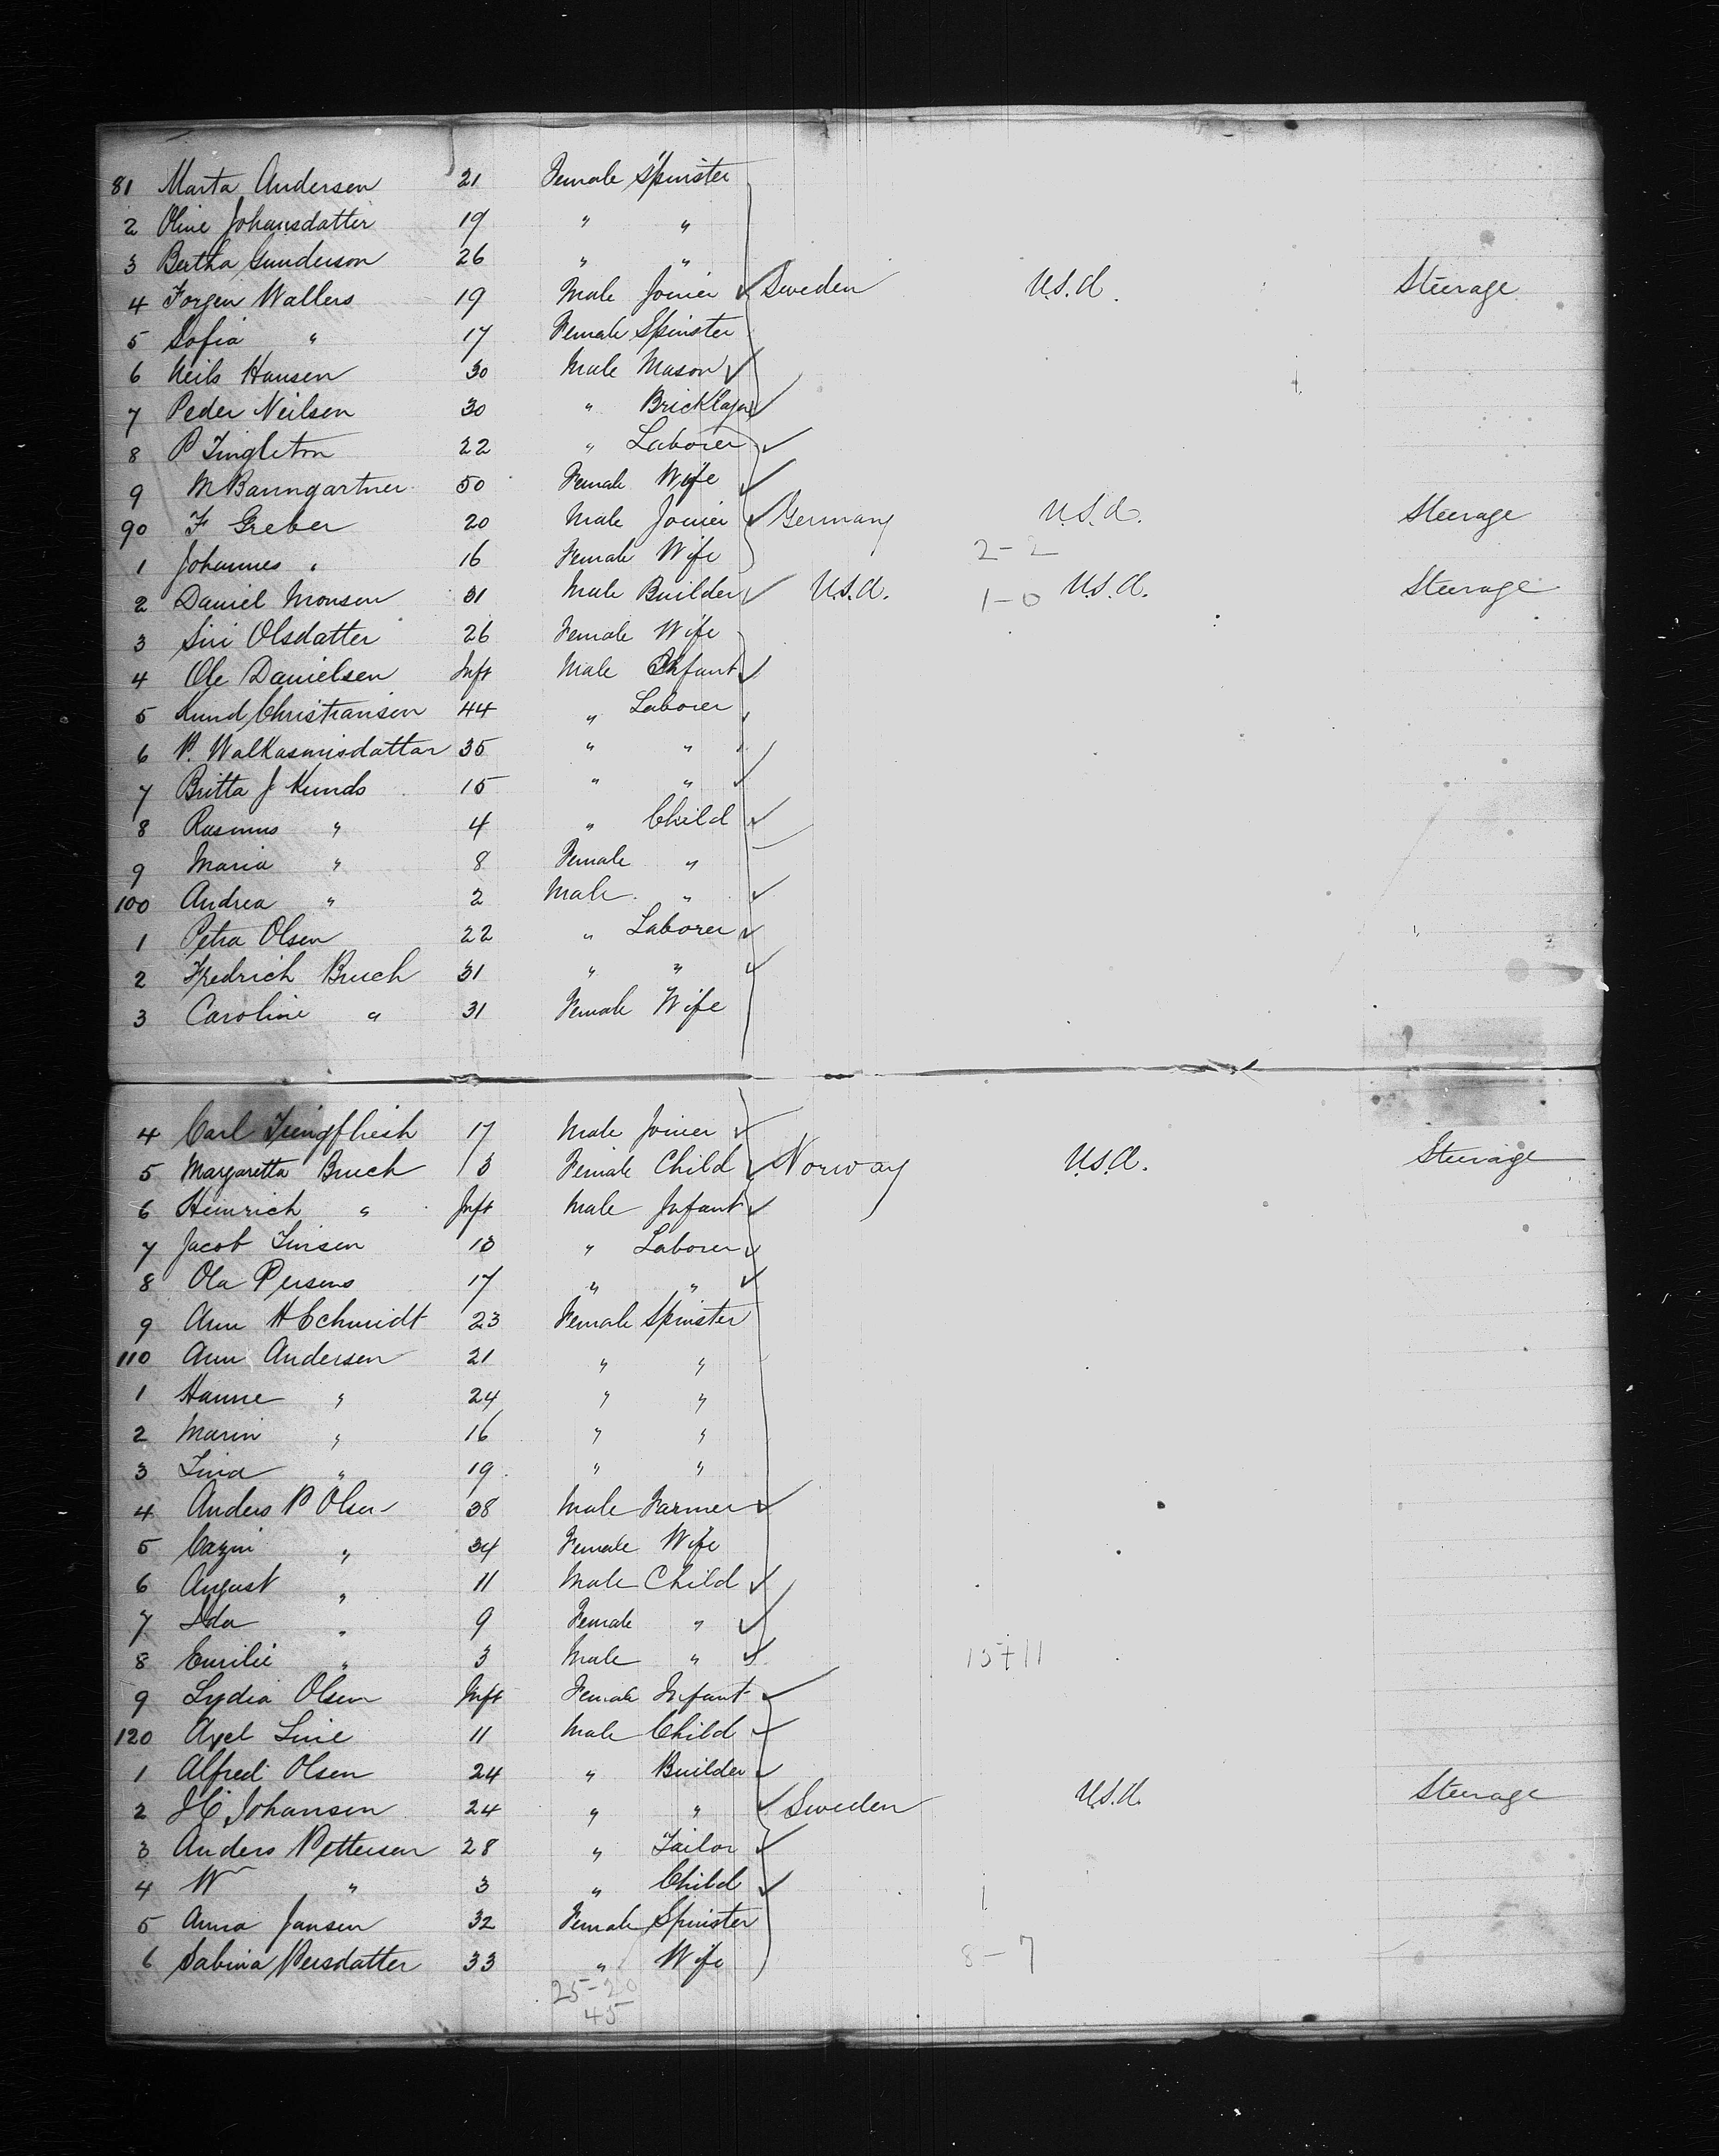 81 Marta Andersen 21 Female Spinster
2 Oline Johansdatter 19 " "
3 Bertha Gunderson 26 " "
4 Jorgen Wallers 19 Male Joiner Sweden U.S.A. Steerage
5 Sofia " 17 Female Spinster
6 Neils Hansen 30 Male Mason
7 Peder Neilsen 30 " Bricklayer
8 P Tingleton 22 " Laborer
9 M Baumgartner 50 Female Wife
90 F Greber 20 Male Joiner Germany U.S.A. Steerage
1 Johannes " 16 Female Wife 2-2
2 Daniel Monsen 31 Male Builder U.S.A. 1-0 U.S.A. Steerage
3 Siri Olsdatter 26 Female Wife
4 Ole Danielsen Inft Male Infant
5 Knud Christiansen 44 " Laborer
6 P. 35 " "
7 Britta J Kunds 15 " "
8 Rasmus " 4 " Child
9 Maria " 8 Female "
100 Andrea " 2 Male "
1 Petra Olsen 22 " Laborer
2 Fredrich Bruch 31 " "
3 Caroline " 31 Female Wife
4 Carl 17 Male Joiner
5 Margaretta Bruch 3 Female Child Norway U.S.A. Steerage
6 Heinrich " Inft Male Infant
7 Jacob Jinsen 13 " Laborer
8 Ola Persens 17 " "
9 Ann H Schmidt 23 Female Spinster
110 Ann Andersen 21 " "
1 Hanne " 24 " "
2 Marin " 16 " "
3 Lina " 19 " "
4 Anders P Olsen 38 Male Farmer
5 " 34 Female Wife
6 August " 11 Male Child
7 Ida " 9 Female "
8 Emilie " 3 Male " 15+11
9 Lydia Olsen Inft Female Infant
120 Axel Linie 11 Male Child
1 Alfred Olsen 24 " Builder
2 J C Johansen 24 " " Sweden U.S.A. Steerage
3 Anders Pettersen 28 " Tailor
4 W " 3 " Child 1
5 Anna Jansen 32 Female Spinster
6 Sabina Persdatter 33 " Wife 8-7
25-20
45